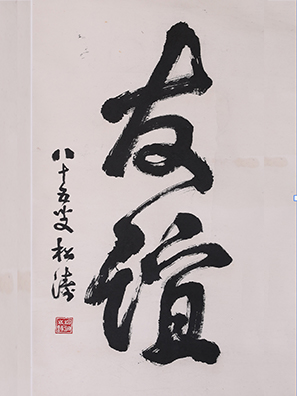 友谊
八十五叟 松涛